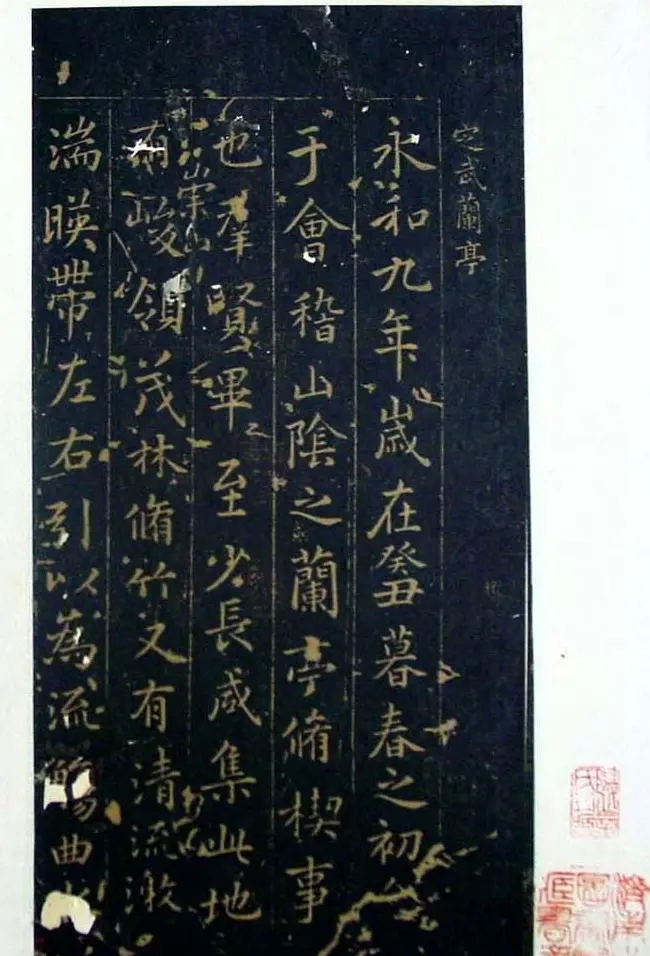 定武蘭亭
永和九年歲在癸丑暮春之初
于會稽山陰之蘭亭脩禊事
也羣賢畢至少長咸集此地
有崇山峻領茂林脩竹又有清流激
湍暎帶左右引以為流觴曲水